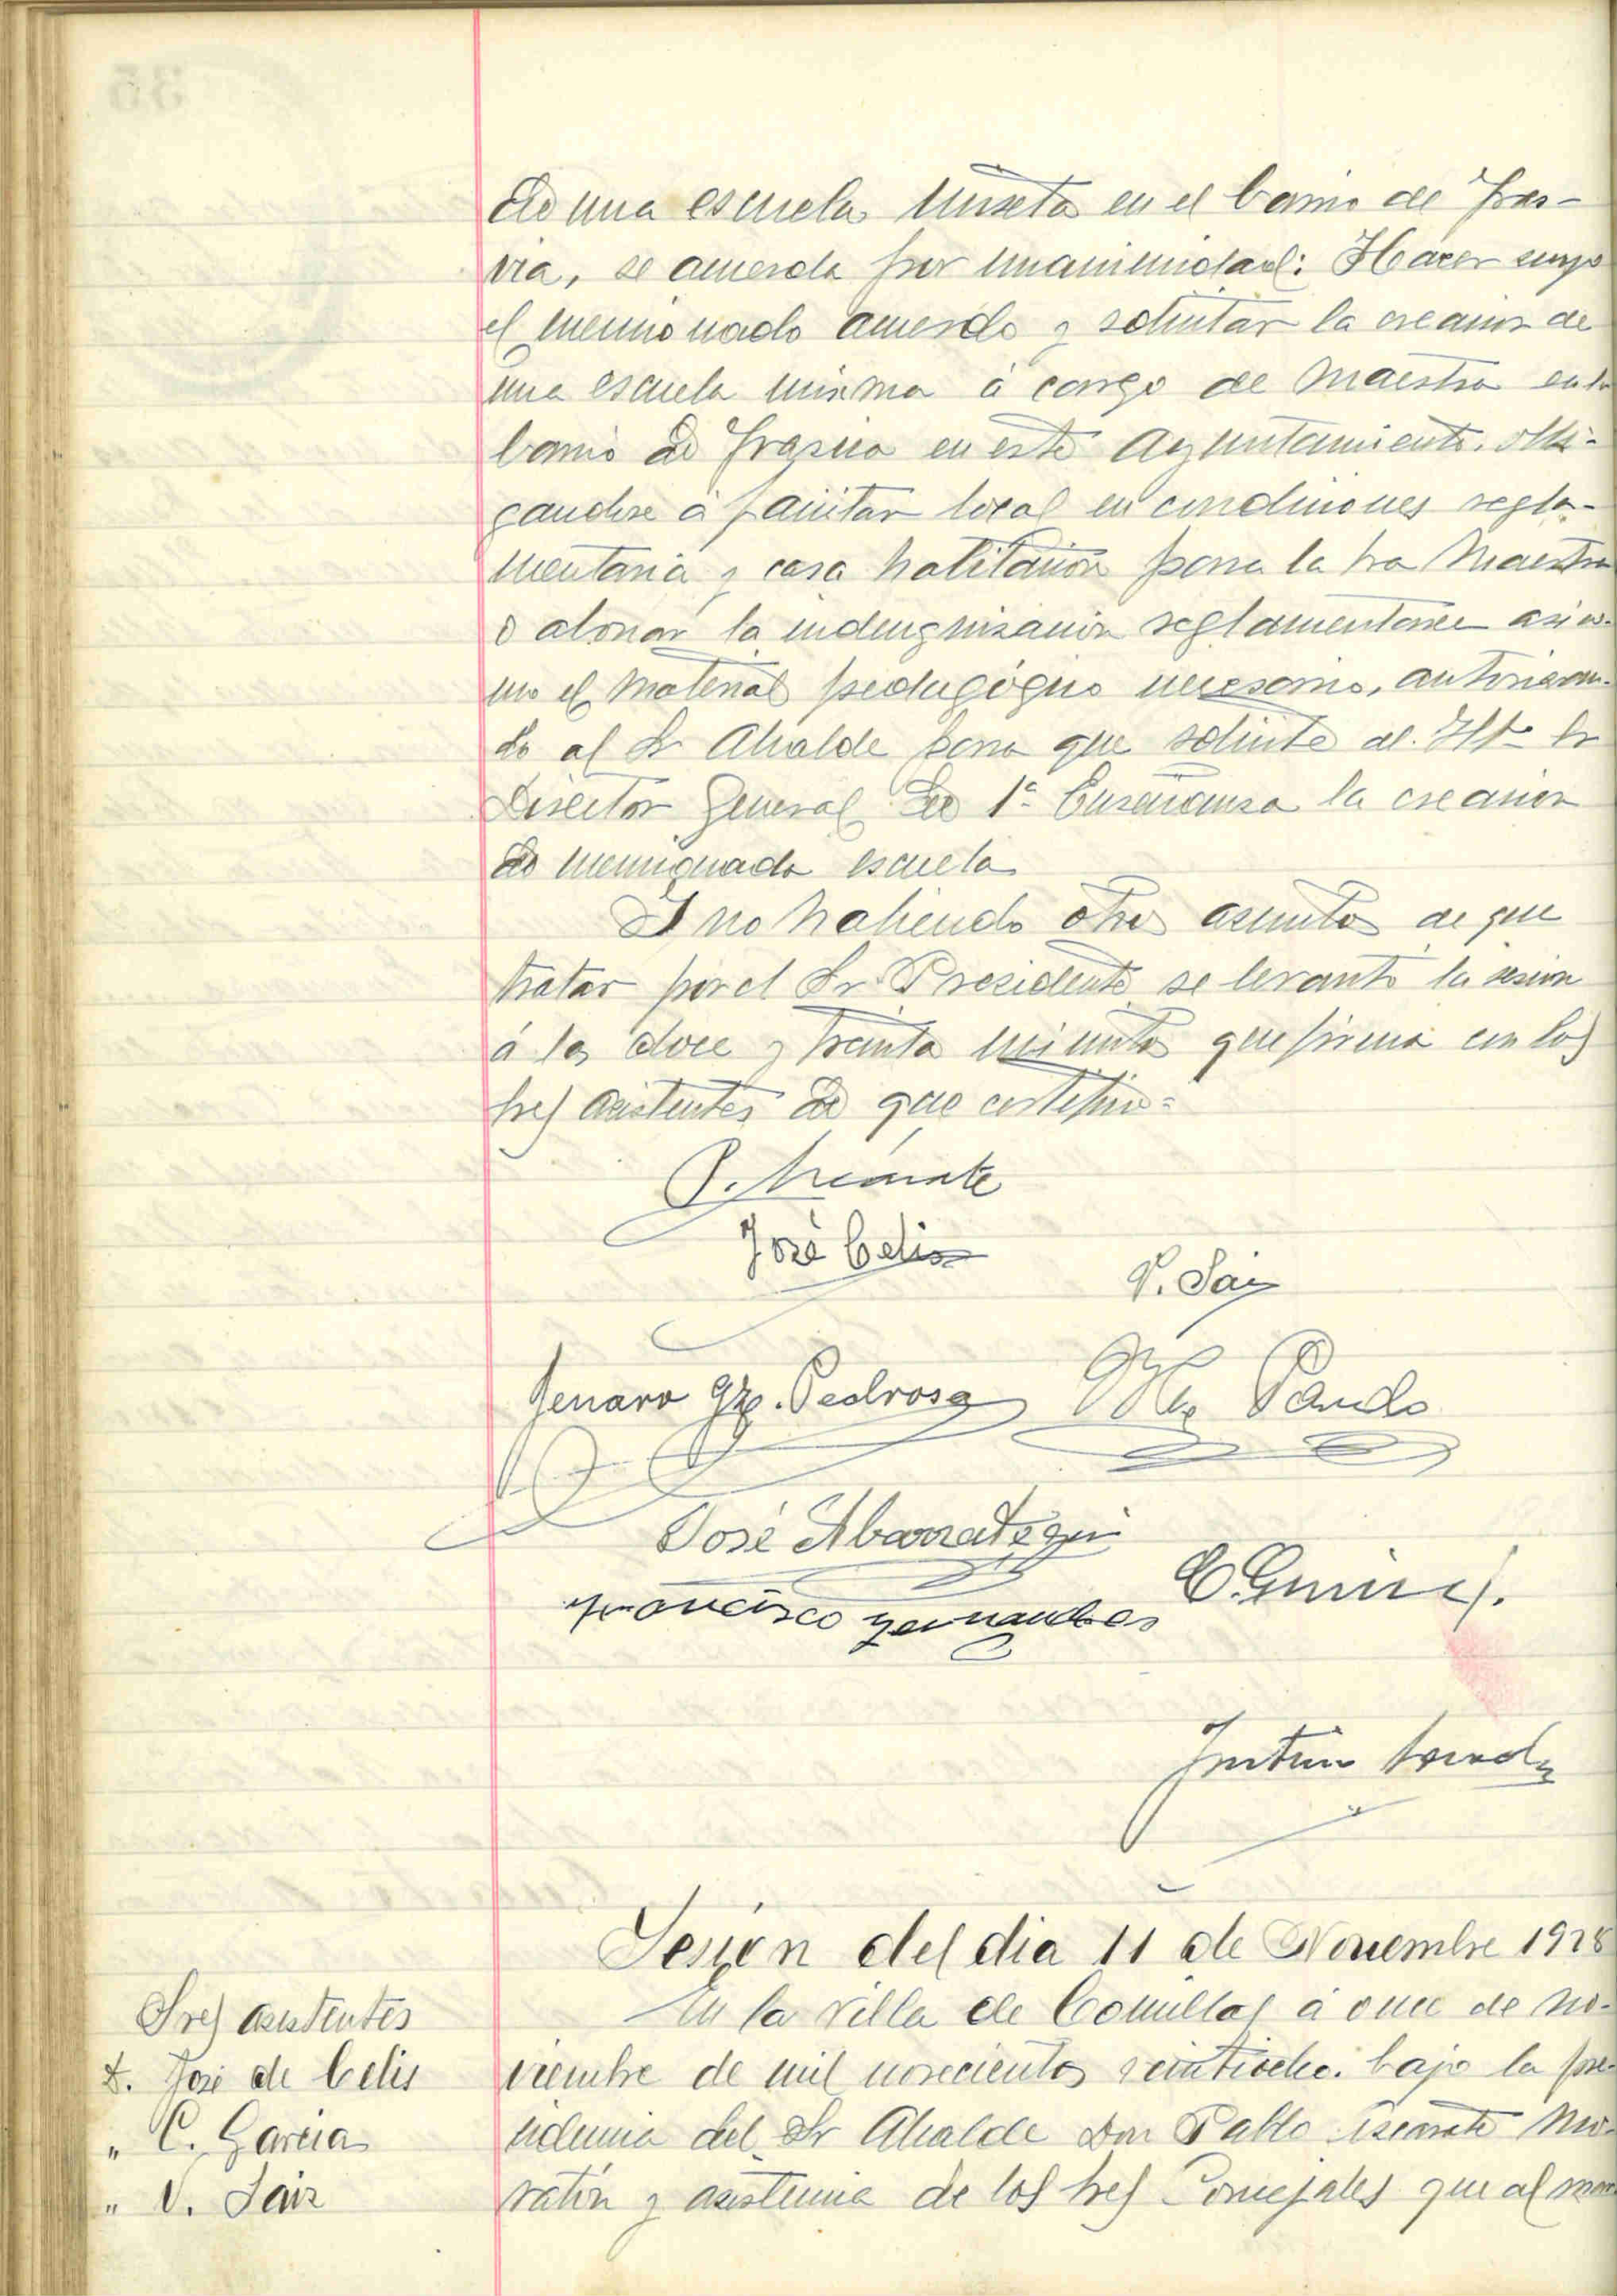 de una escuela mixta en el barrio de Tras-
via, se acuerda por unanimidad: Hacer suyo
el mencionado acuerdo y solicitar la creacion de
una escuela mixta á cargo de Maestra en el
barrio de Trasvia en este Ayuntamiento, obli-
gandose á facilitar local en condiciones regla-
mentaria y casa habitación para la Sra Maestra
o abonar la indemnización reglamentaria asi co-
mo el material pedagógico necesario, autorizan-
do al Sr Alcalde para que solicite al Iltmo Sr
Director General de 1ª Enseñanza la creación
de mencionada escuela
Y no habiendo otros asuntos de que
tratar por el Sr Presidente se levantó la sesion
á las doce y treinta minutos que firma con los
Sres asistentes de que certifico=
José Celis
V. Saiz
Jenaro Gz. Pedrosa
Pando
José Abarrategui
Francisco Fernandes
Sesion del dia 11 de Noviembre 1928
Sres asistentes
D. José de Celis
" C. Garcia
" V. Saiz
En la villa de Comillas á once de No-
viembre de mil novecientos veintiocho. bajo la pre-
sidencia del Sr Alcalde Don Pablo Mo-
ratón y asistencia de los Sres Concejales que al mar